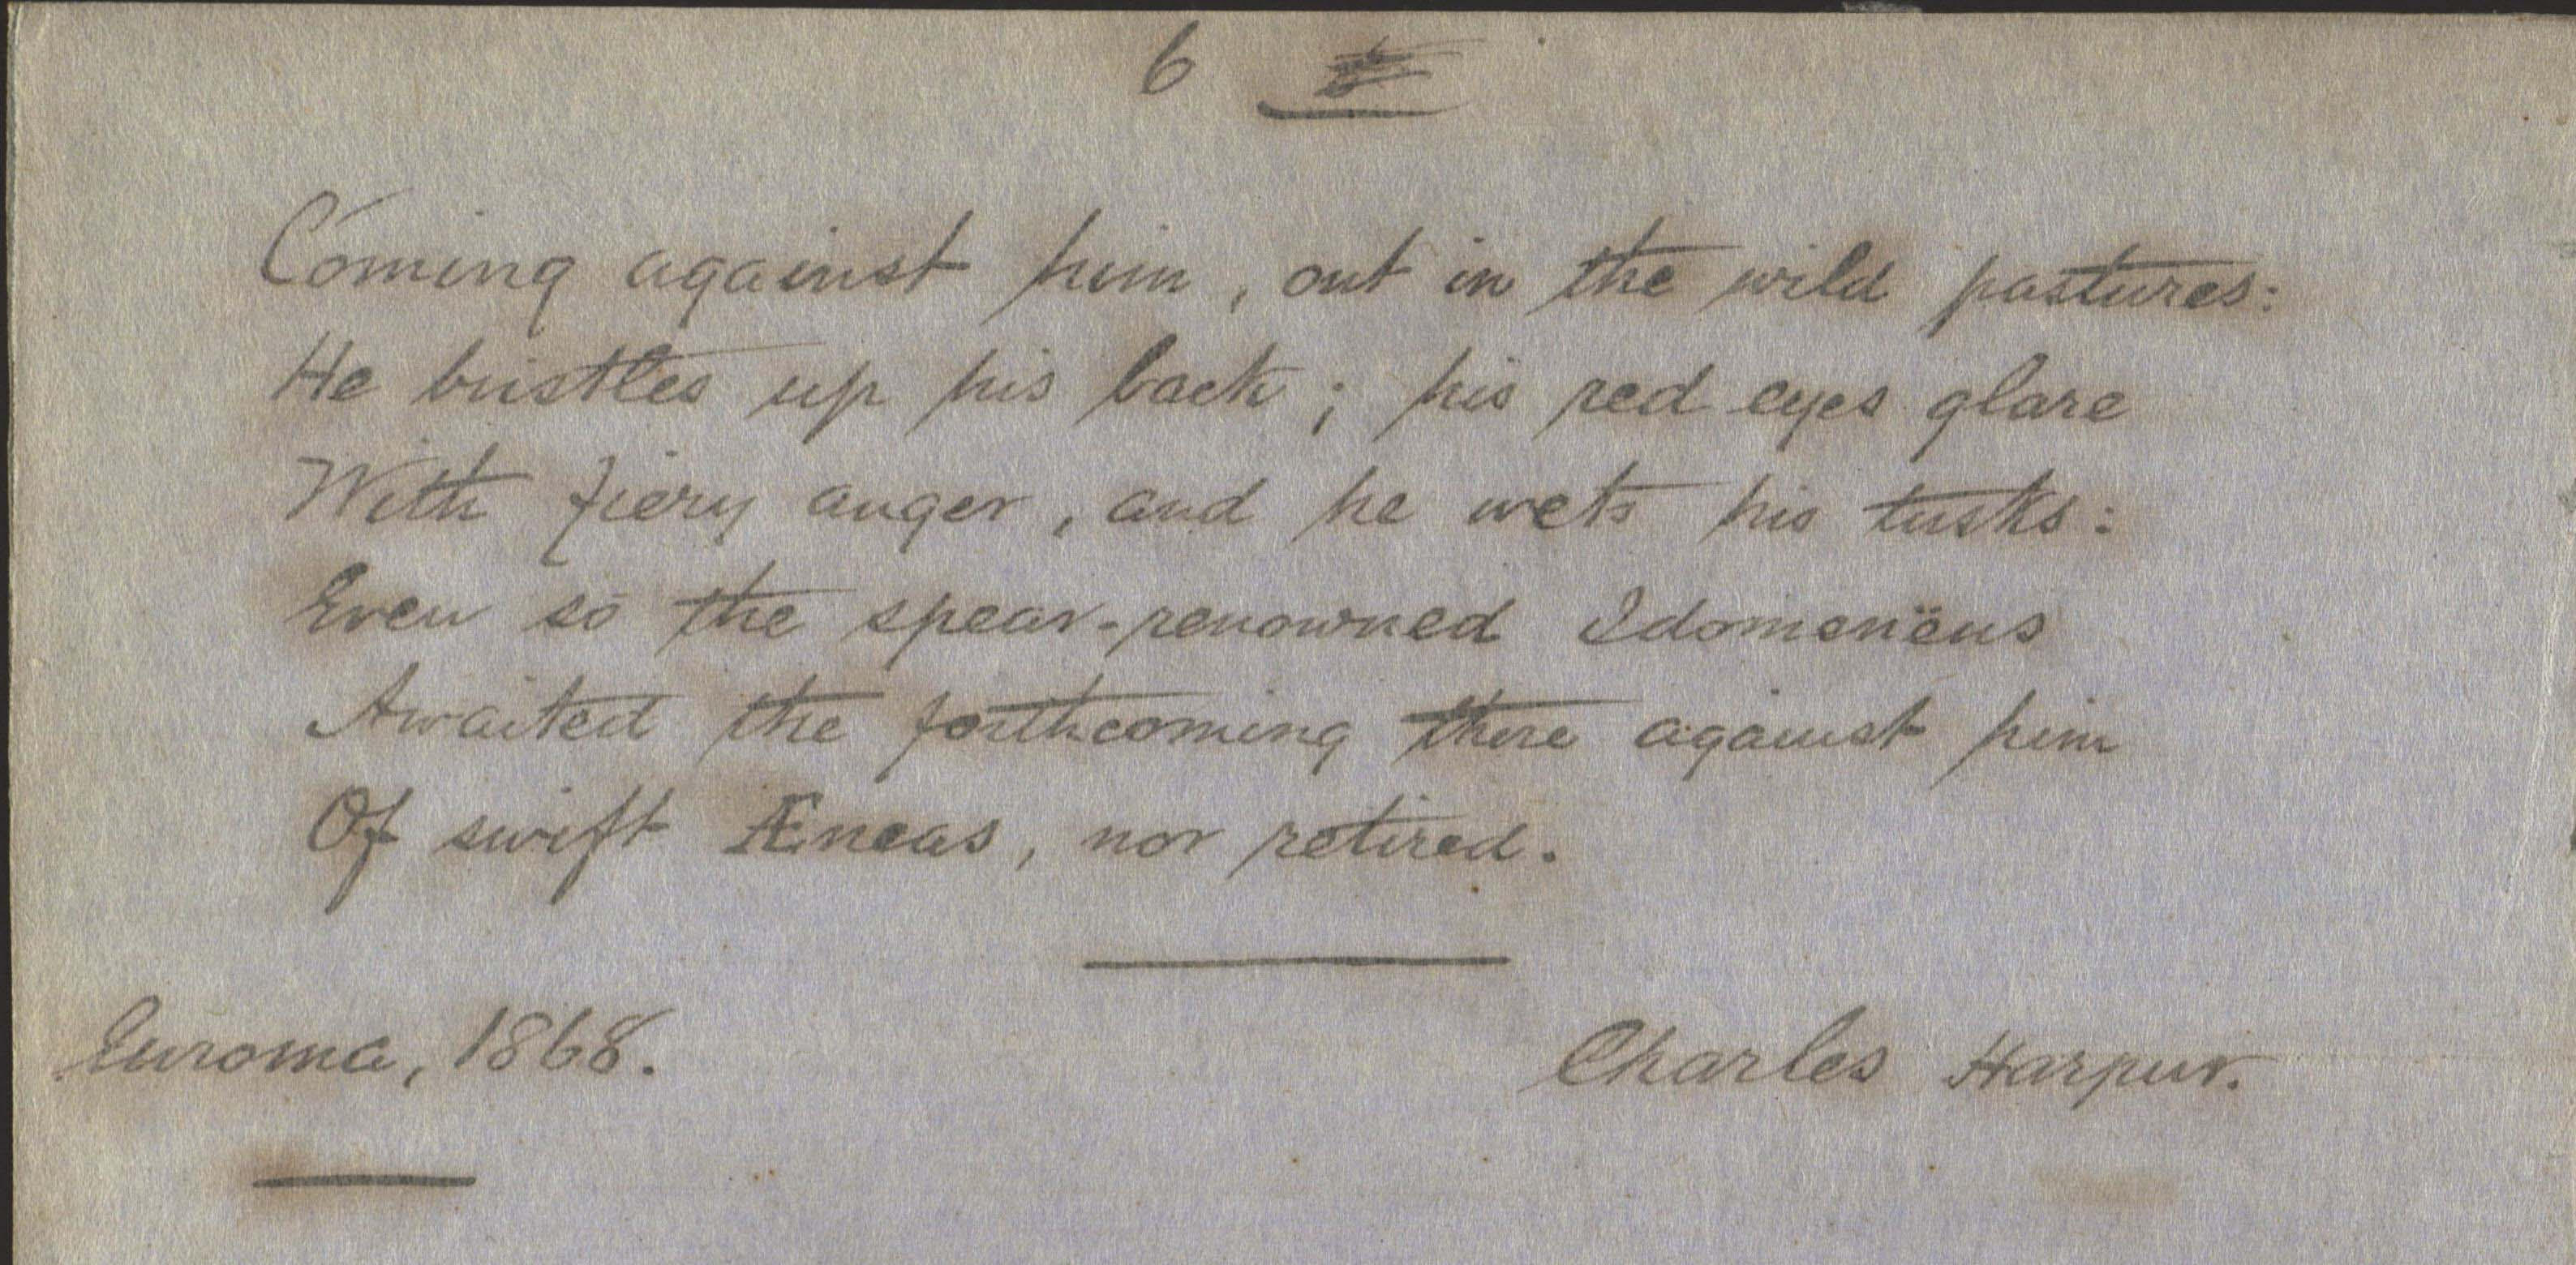 6
Coming against him, out in the wild pastures:
He bristles up his back; his red eyes glare
With fiery anger, and he wets his tusks:
Even so the spear-renowned Idomenëus
Awaited the forthcoming there against him
Of swift Æneas, nor retired.
Euroma, 1868.
Charles Harpur.